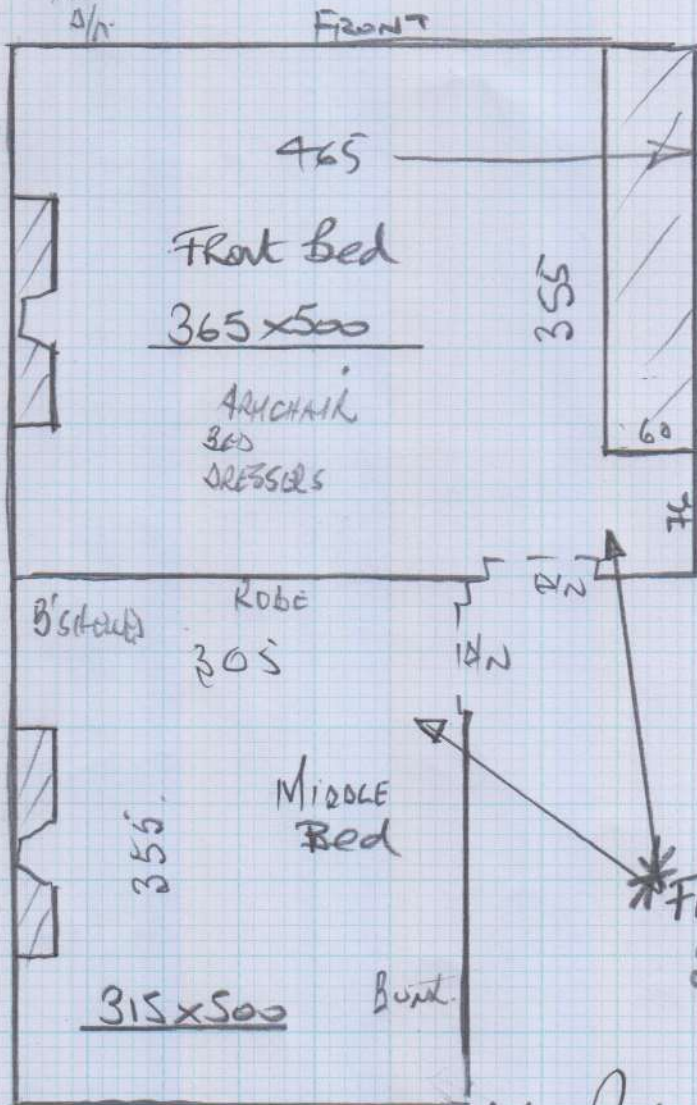 FRONT
465
Front Bed
365 x 500
355
ARMCHAIR
BED
DRESSERS
60
ROBE
305
MIDDLE
Bed
355
315 x 500
BUNK